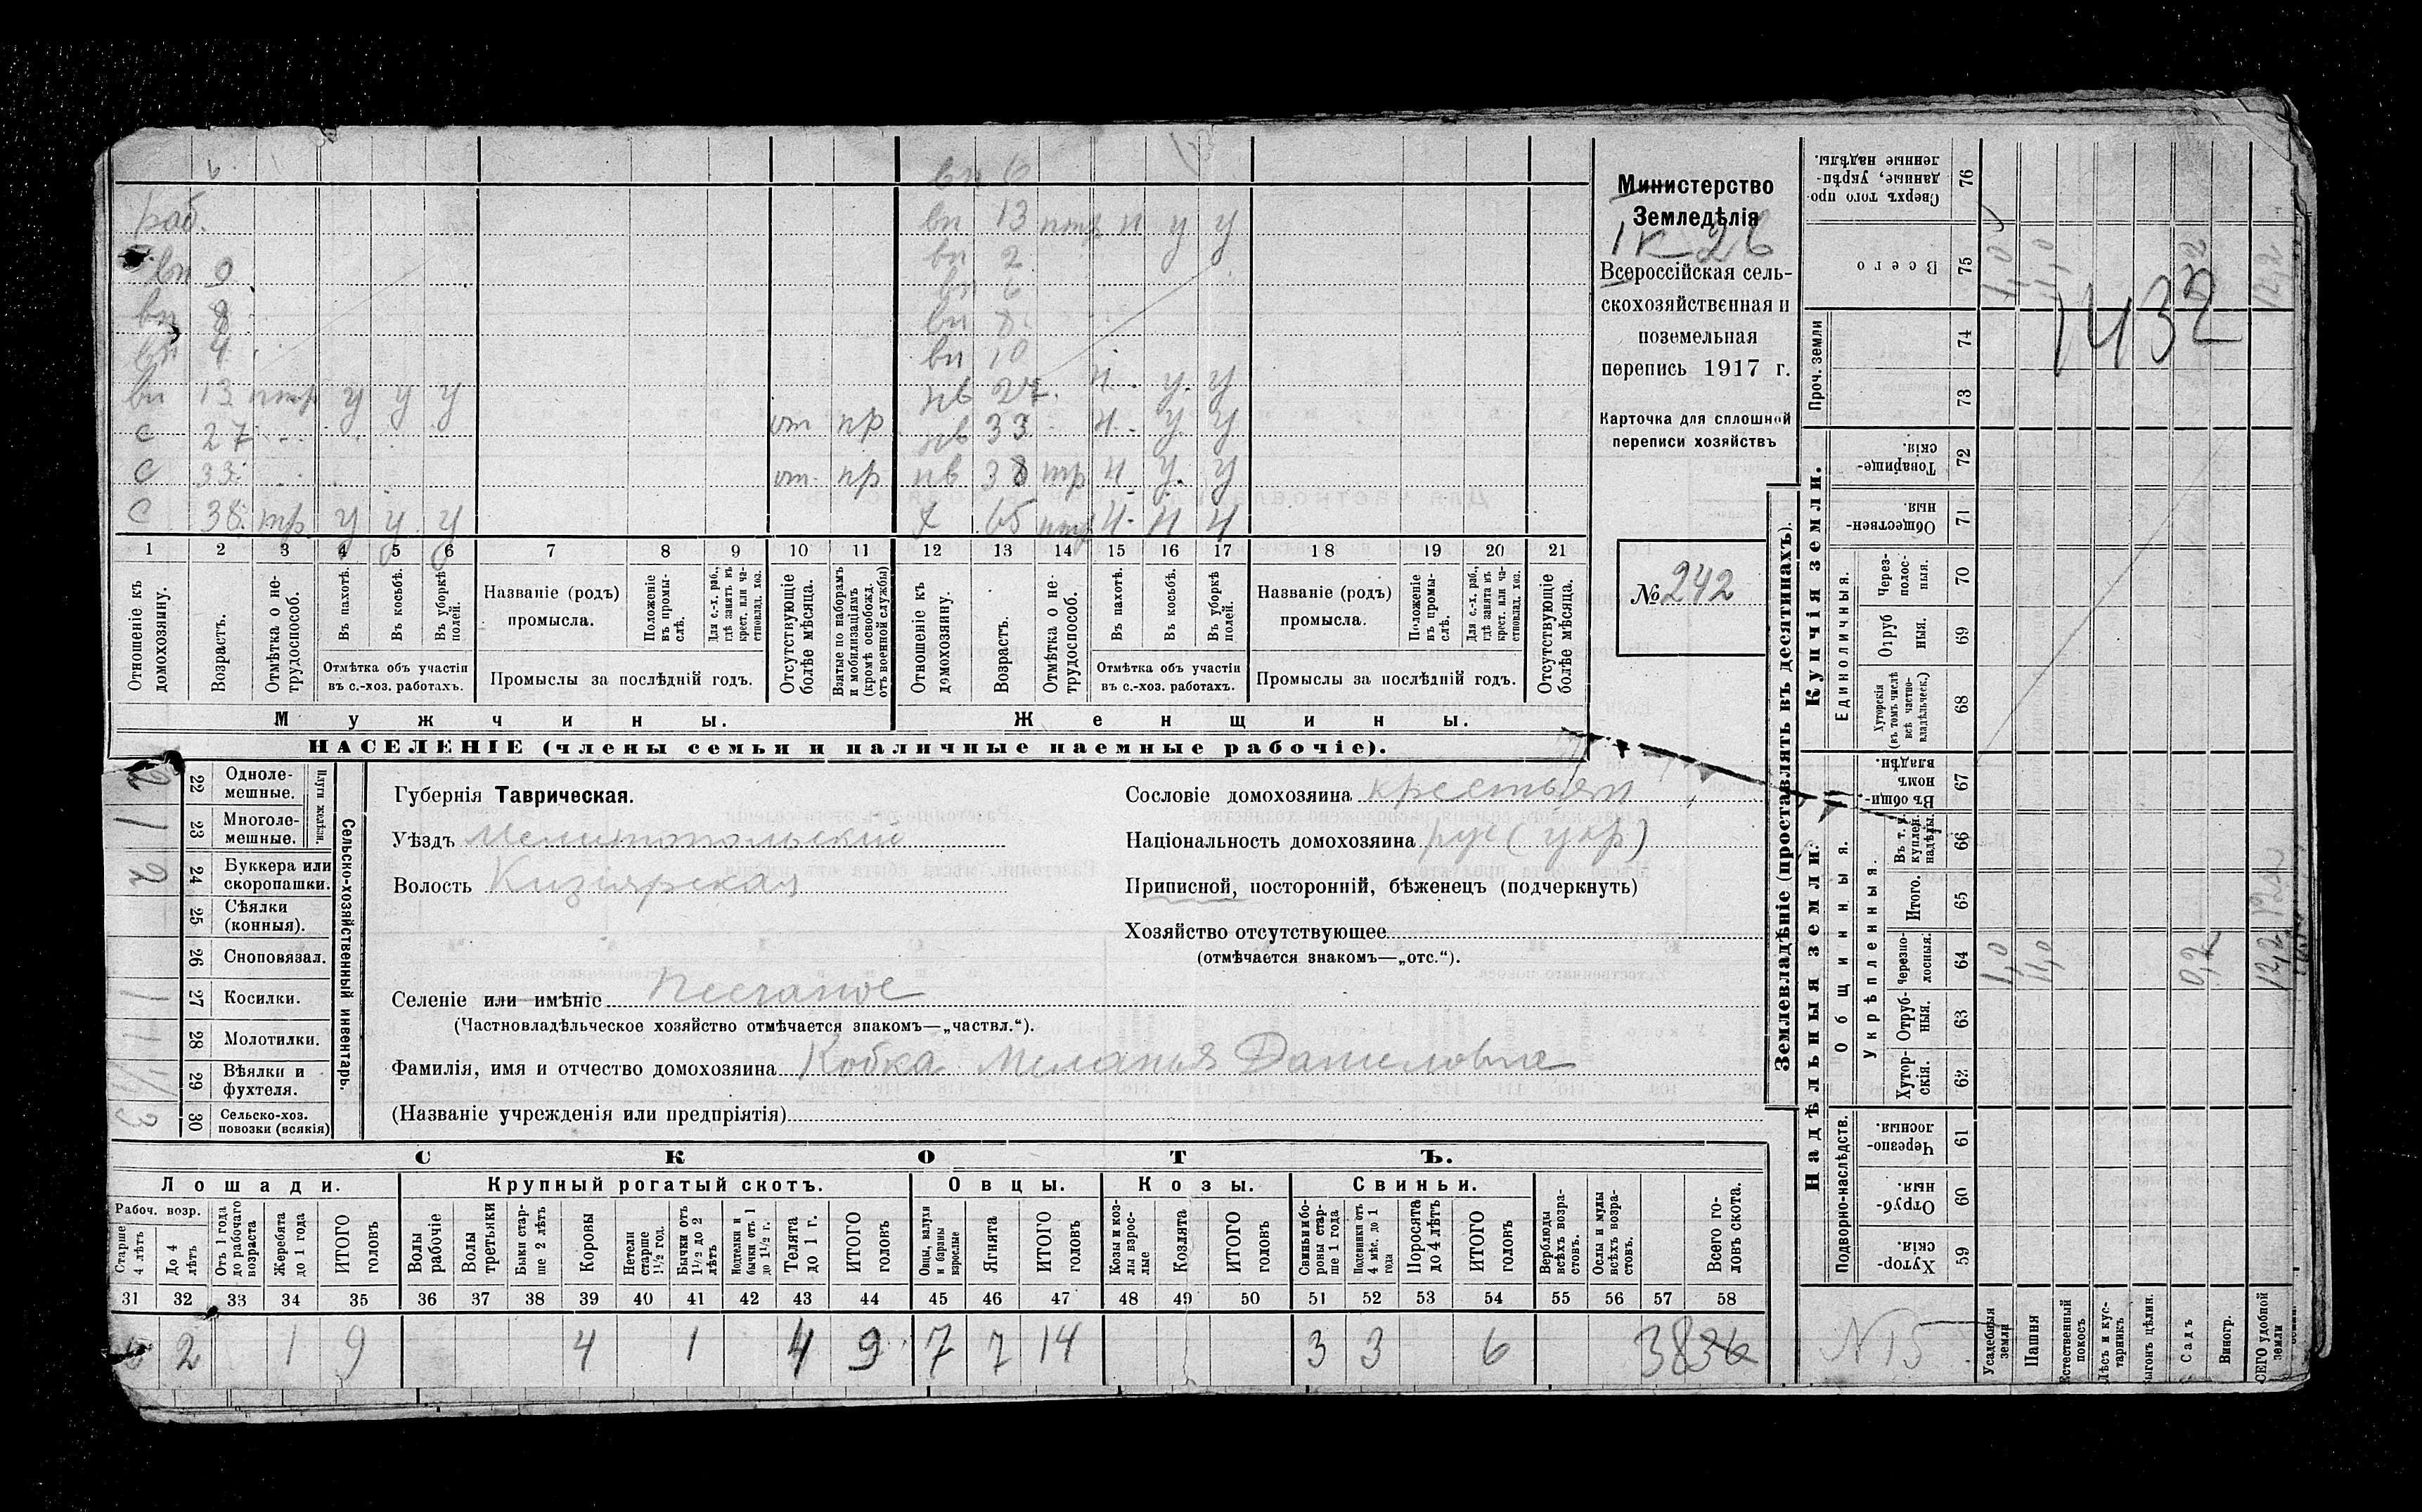 6
раб.
вп 9
вп 8
вп 4
вп 13 птр у у у
с 27 от пр
с 33 от пр
с 38 тр у у у
вп 6
вп 13 птр н у у
вп 2
вп 6
вп 8
вп 10
нв 27 н у у
нв 33 н у у
нв 38 тр н у у
х 65 птр н н н
1 2 3 4 5 6 7 8 9 10 11 12 13 14 15 16 17 18 19 20 21
Отношеніе къ домохозяину.
Возрастъ.
Отмѣтка о нетрудоспособ.
Въ пахотѣ.
Въ косьбѣ.
Въ уборкѣ полей.
Отмѣтка объ участіи
въ с.-хоз. работахъ.
Названіе (родъ)
промысла.
Положеніе въ промыслѣ.
Для с.-х. раб., гдѣ занятъ въ крест. или частновлад. хоз.
Промыслы за послѣдній годъ.
Отсутствующіе болѣе мѣсяца.
Взятые по наборамъ и мобилизаціямъ (кромѣ освобожд. отъ военной службы)
Отношеніе къ домохозяину.
Возрастъ.
Отмѣтка о нетрудоспособ.
Въ пахотѣ.
Въ косьбѣ.
Въ уборкѣ полей.
Отмѣтка объ участіи
въ с.-хоз. работахъ.
Названіе (родъ)
промысла.
Положеніе въ промыслѣ.
Для с.-х. раб., гдѣ занята въ крест. или частновлад. хоз.
Промыслы за послѣдній годъ.
Отсутствующіе болѣе мѣсяца.
Мужчины.
Женщины.
НАСЕЛЕНІЕ (члены семьи и наличные наемные рабочіе).
Министерство
Земледѣлія
1к-26
Всероссійская сель-
скохозяйственная и
поземельная
перепись 1917 г.
Карточка для сплошной
переписи хозяйствъ
№ 242
Сельско-хозяйственный инвентарь.
Плуги желѣзн.
2 22 Одноле-
мешные.
1 23 Многоле-
мешные.
2 24 Буккера или
скоропашки.
25 Сѣялки
(конныя).
26 Сноповязал.
1 27 Косилки.
1 28 Молотилки.
1 29 Вѣялки и
фухтеля.
3 30 Сельско-хоз.
повозки (всякія)
Губернія Таврическая.
Уѣздъ Мелитопольский
Волость Кизіярская
Селеніе или имѣніе Песчаное
(Частновладѣльческое хозяйство отмѣчается знакомъ—„частвл.“).
Фамилія, имя и отчество домохозяина Кобка Меланья Даниловна
(Названіе учрежденія или предпріятія)
Сословіе домохозяина крестьян
Національность домохозяина рус (укр)
Приписной, посторонній, бѣженецъ (подчеркнуть)
Хозяйство отсутствующее
(отмѣчается знакомъ—„отс.“).
СКОТЪ.
Лошади. Крупный рогатый скотъ. Овцы. Козы. Свиньи.
Рабоч. возр.
Старше 4 лѣтъ
До 4 лѣтъ
Отъ 1 года до рабочаго возраста
Жеребята до 1 года
ИТОГО головъ
Волы рабочіе
Волы третьяки
Быки старше 2 лѣтъ
Коровы
Нетели старше 1½ год.
Бычки отъ 1½ до 2 лѣтъ
Подтелки и бычки отъ 1 до 1½ г.
Телята до 1 г.
ИТОГО головъ
Овцы, валухи и бараны взрослые
Ягнята
ИТОГО головъ
Козы и козлы взрослые
Козлята
ИТОГО головъ
Свиньи и боровы старше 1 года
Подсвинки отъ 4 мѣс. до 1 года
Поросята до 4 лѣтъ
ИТОГО головъ
Верблюды всѣхъ возрастовъ.
Ослы и мулы всѣхъ возрастовъ.
Всего головъ скота.
31 32 33 34 35 36 37 38 39 40 41 42 43 44 45 46 47 48 49 50 51 52 53 54 55 56 57 58
6 2 1 9 4 1 4 9 7 7 14 3 3 6 38 36
Землевладѣніе (проставлять въ десятинахъ).
Надѣльныя земли.
Купчія земли.
Подворно-наслѣдств.
Общинныя.
Укрѣпленныя.
Единоличныя.
Проч. земли
Сверхъ того проданные, укрѣпленные надѣлы. 76
Всего 75
74
73
Товарищескія. 72
Общественныя. 71
Черезполосныя. 70
Отрубныя. 69
Хуторскія (въ томъ числѣ всѣ частновладѣльческ.) 68
Въ общинномъ владѣн. 67
Въ т. ч. куплен. надѣлы. 66
Итого. 65
Черезполосныя. 64
Отрубныя. 63
Хуторскія. 62
Черезполосныя. 61
Отрубныя. 60
Хуторскія. 59
1,0 11,0 0,2 12,2
1,0 11,0 0,2 12,2
1432
N 15
Усадебныя земли
Пашня
Естественный покосъ
Лѣсъ и кустарникъ
Выгонъ цѣлин.
Садъ
Виногр.
ВСЕГО удобной земли